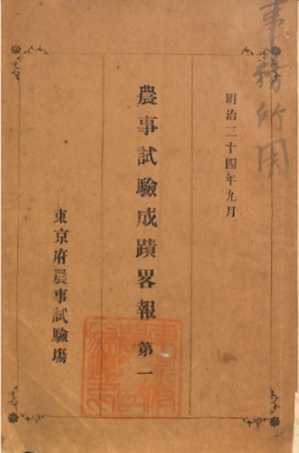 事務所用
明治三十四年九月
農事試驗成蹟畧報 第一
東京府農事試驗塲